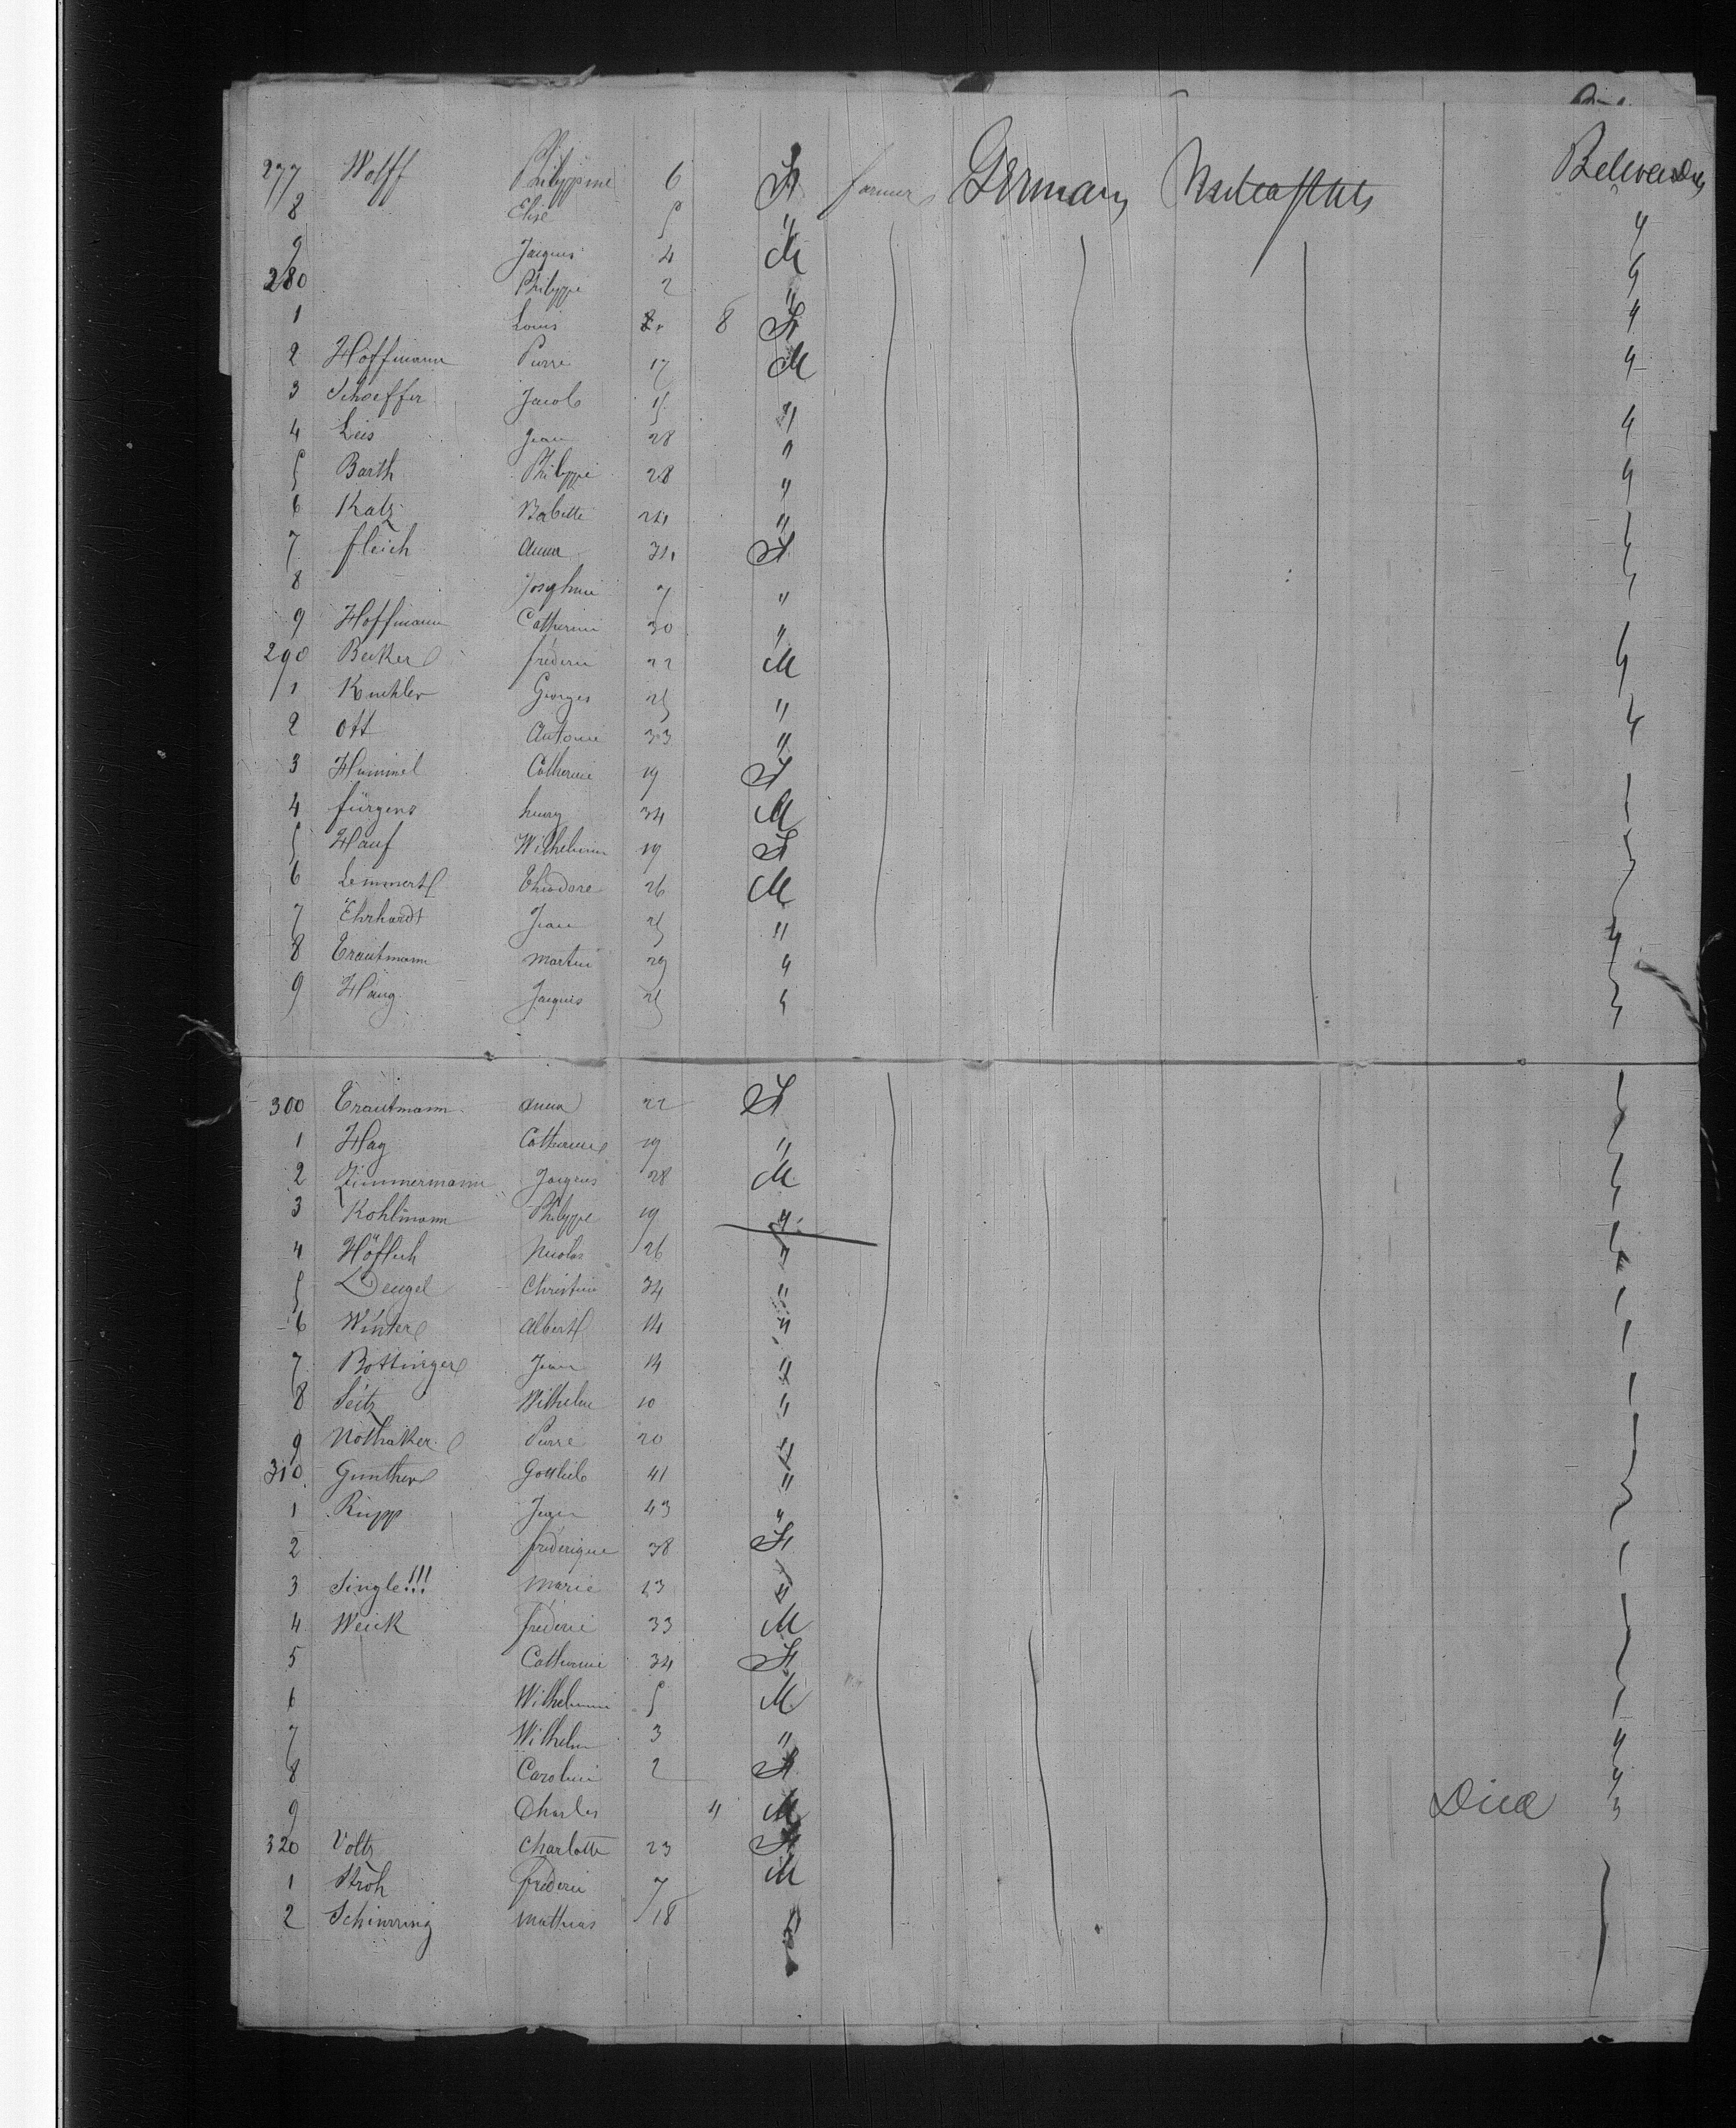 277 Wolff Philippine 6 F farmer Germany Belvedere
8 Elise 5 "
9 Jacques 4 M "
280 Philippe 2 " "
1 Louis 8 F "
2 Hoffmann Pierre 17 M "
3 Schoeffer Jacob 15 " "
4 Leis Jean 28 "
5 Barth Philippe 28 " "
6 Katz Babette 24 "
7 fleich Anna 31 F
8 Josephine 7 "
9 Hoffmann Catherine 30 "
290 Becker frederic 22 M "
1 Kuehler Georges 25 "
2 Ott Antoine 33 " "
3 Hummel Catherine 19 F
4 fürgens henry 34 M
5 Hauf Wilhelmine 19 F
6 Lemmert Theodore 26 M
7 Ehrhardt Jean 25 "
8 Trautmann Martin 29 " "
9 Häug Jacques 25 " "
300 Trautmann Anna 22 F
1 Hag Catherine 19 "
2 Zimmermann Jacques 28 M
3 Kohlmann Philippe 19 "
4 Höflich Nicolas 26 "
5 Dengel Christine 34 "
6 Winter Albert 14 "
7 Bottinger Jean 14 "
8 Seitz Wilhelm 10 "
9 Nothaker Pierre 20 "
310 Gunther Gottlieb 41 "
1 Rupp Jean 43 "
2 frederique 38 F
3 Single!!! Marie 13 "
4 Weick frederic 33 M
5 Catherine 34 F
6 Wilhelmine 5 M
7 Wilhelm 3 " "
8 Caroline 2 F "
9 Charles 4 M Died "
320 Voltz Charlotte 23 F
1 Stroh frederic 7 M
2 Mathias 18 "